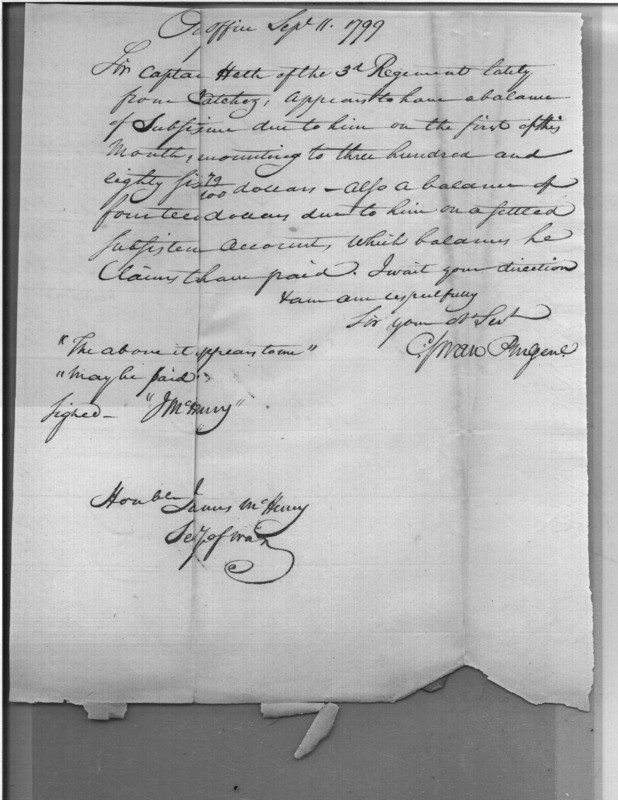 Py office Sepr 11. 1799
Sir Captan Heth of the 3d Regement lately
from Natchez, Appears to have a balance
of Subsistence due to him on the first of this
Month, mounting to three hundred and
eighty six 79/100 dollars - also a balance of
fourteen dollars due to him on a settled
Subsistence Account, which balances he
Claims to have paid. I wait your direction
& am am respectfully
Sir your Ob Sevt
C Swan PmGenl
"The above it appears to me"
"may be paid"
signed - "J McHenry"
Honble James McHenry
Secy of War